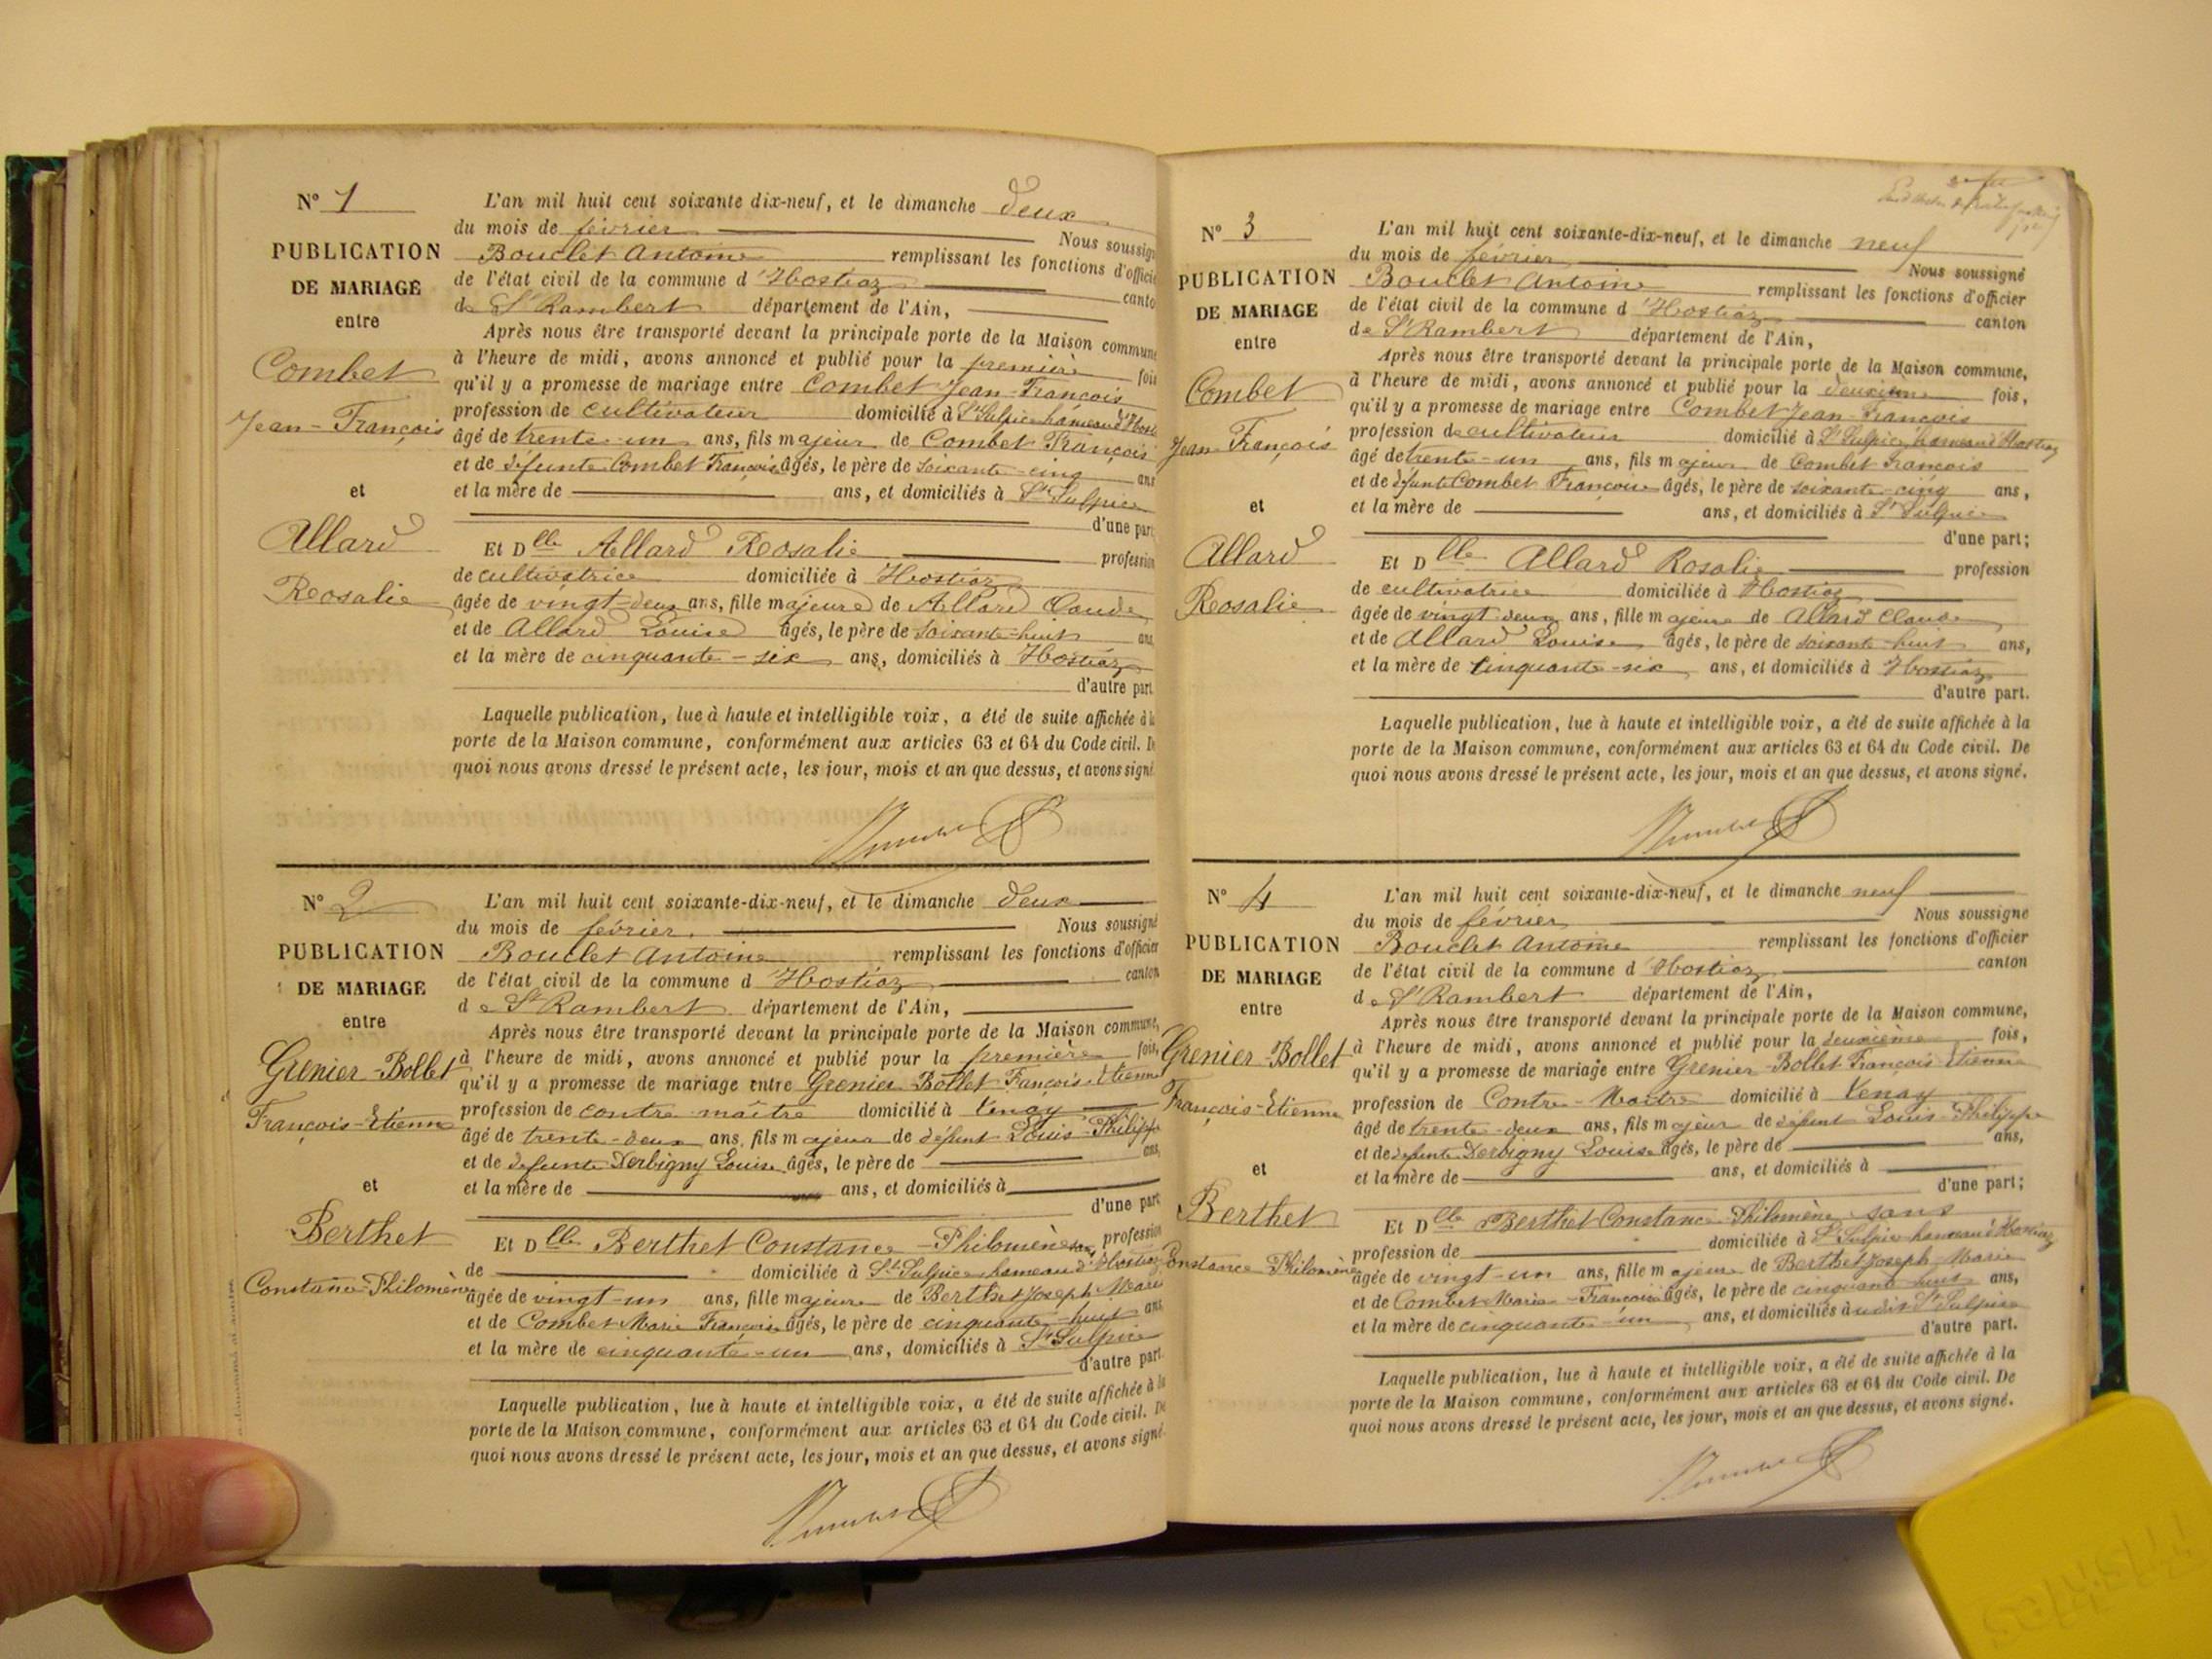 N° 1
PUBLICATION
DE MARIAGE
entre
Combet
Jean-François
et
Allard
Rosalie
L'an mil huit cent soixante dix-neuf, et le dimanche deux
du mois de février Nous soussign
Bouclet Antoine remplissant les fonctions d'offici
de l'état civil de la commune d'Hostiaz canto
de St Rambert département de l'Ain,
Après nous être transporté devant la principale porte de la Maison commune
à l'heure de midi, avons annoncé et publié pour la première fois
qu'il y a promesse de mariage entre Combet Jean-François
profession de cultivateur domicilié à St Sulpice hameau d'Host
âgé de trente-un ans, fils majeur de Combet François
et de défunte Combet Françoise âgés, le père de soixante-cinq ans
et la mère de ans, et domiciliés à St Sulpice
d'une part
Et Dlle Allard Rosalie profession
de cultivatrice domiciliée à Hostiaz
âgée de vingt-deux ans, fille majeure de Allard Claude
et de Allard Louise âgés, le père de soixante-huit ans
et la mère de cinquante-six ans, domiciliés à Hostiaz
d'autre part
Laquelle publication, lue à haute et intelligible voix, a été de suite affichée à la
porte de la Maison commune, conformément aux articles 63 et 64 du Code civil. D
quoi nous avons dressé le présent acte, les jour, mois et an que dessus, et avons signé
N° 2
PUBLICATION
DE MARIAGE
entre
Grenier-Bollet
François-Etienne
et
Berthet
Constance-Philomène
L'an mil huit cent soixante-dix-neuf, et le dimanche deux
du mois de février. Nous soussigné
Bouclet Antoine remplissant les fonctions d'officier
de l'état civil de la commune d'Hostiaz canton
de St Rambert département de l'Ain,
Après nous être transporté devant la principale porte de la Maison commune,
à l'heure de midi, avons annoncé et publié pour la première fois,
qu'il y a promesse de mariage entre Grenier-Bollet François-Etienne
profession de contre maître domicilié à Tenay
âgé de trente-deux ans, fils majeur de défunt Louis-Philippe
et de défunte Derbigny Louise âgés, le père de ans,
et la mère de ans, et domiciliés à
d'une part
Et Dlle Berthet Constance-Philomène sans profession
de domiciliée à St Sulpice hameau d'Hostiaz
âgée de vingt-un ans, fille majeure de Berthet Joseph Marie
et de Combet Marie Françoise âgés, le père de cinquante-huit ans
et la mère de cinquante-un ans, domiciliés à St Sulpice
d'autre part
Laquelle publication, lue à haute et intelligible voix, a été de suite affichée à la
porte de la Maison commune, conformément aux articles 63 et 64 du Code civil. De
quoi nous avons dressé le présent acte, les jour, mois et an que dessus, et avons signé
N° 3
PUBLICATION
DE MARIAGE
entre
Combet
Jean-François
et
Allard
Rosalie
L'an mil huit cent soixante-dix-neuf, et le dimanche neuf
du mois de février Nous soussigné
Bouclet Antoine remplissant les fonctions d'officier
de l'état civil de la commune d'Hostiaz canton
de St Rambert département de l'Ain,
Après nous être transporté devant la principale porte de la Maison commune,
à l'heure de midi, avons annoncé et publié pour la deuxième fois,
qu'il y a promesse de mariage entre Combet Jean-François
profession de cultivateur domicilié à St Sulpice, hameau d'Hostiaz
âgé de trente-un ans, fils majeur de Combet François
et de défunte Combet Françoise âgés, le père de soixante-cinq ans,
et la mère de ans, et domiciliés à St Sulpice
d'une part;
Et Dlle Allard Rosalie profession
de cultivatrice domiciliée à Hostiaz
âgée de vingt deux ans, fille majeure de Allard Claude
et de Allard Louise âgés, le père de soixante-huit ans,
et la mère de cinquante-six ans, et domiciliés à Hostiaz
d'autre part.
Laquelle publication, lue à haute et intelligible voix, a été de suite affichée à la
porte de la Maison commune, conformément aux articles 63 et 64 du Code civil. De
quoi nous avons dressé le présent acte, les jour, mois et an que dessus, et avons signé.
N° 4
PUBLICATION
DE MARIAGE
entre
Grenier-Bollet
François-Etienne
et
Berthet
Constance Philomène
L'an mil huit cent soixante-dix-neuf, et le dimanche neuf
du mois de février Nous soussigné
Bouclet Antoine remplissant les fonctions d'officier
de l'état civil de la commune d'Hostiaz canton
de St Rambert département de l'Ain,
Après nous être transporté devant la principale porte de la Maison commune,
à l'heure de midi, avons annoncé et publié pour la deuxième fois,
qu'il y a promesse de mariage entre Grenier-Bollet François-Etienne
profession de Contre-Maître domicilié à Tenay
âgé de trente-deux ans, fils majeur de défunt Louis-Philippe
et de défunte Derbigny Louise âgés, le père de ans,
et la mère de ans, et domiciliés à
d'une part;
Et Dlle Berthet Constance-Philomène sans
profession de domiciliée à St Sulpice hameau d'Hostiaz
âgée de vingt-un ans, fille majeure de Berthet Joseph-Marie
et de Combet Marie-Françoise âgés, le père de cinquante-huit ans,
et la mère de cinquante-un ans, et domiciliés à audit St Sulpice
d'autre part.
Laquelle publication, lue à haute et intelligible voix, a été de suite affichée à la
porte de la Maison commune, conformément aux articles 63 et 64 du Code civil. De
quoi nous avons dressé le présent acte, les jour, mois et an que dessus, et avons signé.